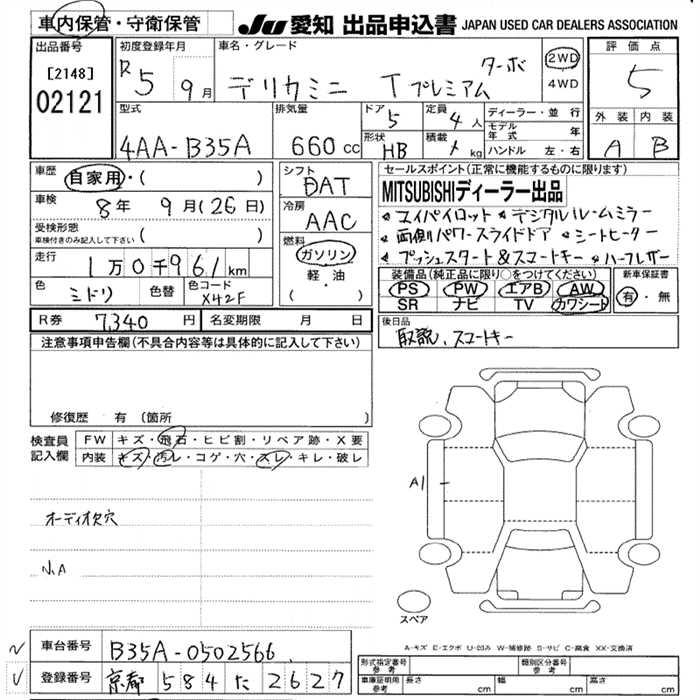 車内保管・守衛保管
JU 愛知 出品申込書 JAPAN USED CAR DEALERS ASSOCIATION
出品番号
[2148]
02121
初度登録年月
R 5 9月
車名・グレード
デリカミニ T プレミアム ターボ
2WD
4WD
評価点
5
外装 内装
A B
型式
4AA-B35A
排気量
660 cc
ドア
5
形状
HB
定員
4人
積載
kg
ディーラー・並行
モデル年式 年
ハンドル 左・右
車歴
自家用・( )
車検
8年 9月(26日)
受検形態
車検付きのみ記入して下さい ( )
走行
1万0千961km
色
ミドリ
色替
色コード
X42F
シフト
DAT
冷房
AAC
燃料
ガソリン
軽・油
( )
セールスポイント(正常に機能するものに限ります)
MITSUBISHIディーラー出品
マイパイロット デジタルルームミラー
両側パワースライドドア シートヒーター
プッシュスタート&スマートキー ハーフレザー
装備品(純正品に限り○をつけてください)
PS PW エアB AW
SR ナビ TV カワシート
新車保証書
有・無
R券 7,340円
名変期限 月 日
後日品
取説、スマートキー
注意事項申告欄(不具合内容等は具体的に記入して下さい)
修復歴 有(箇所 )
検査員記入欄
FW キズ・飛石・ヒビ割・リペア跡・X要
内装 キズ・汚レ・コゲ・穴・スレ・キレ・破レ
オーディオ欠穴
N.A
A1
スペア
A-キズ E-エクボ U-凹み W-補修跡 S-サビ C-腐食 XX-交換済
車台番号 B35A-0502566
登録番号 京都 584 た 2627
型式指定番号 参考
類別区分番号 参考
車庫証明用 参考 長さ cm 幅 cm 高さ cm